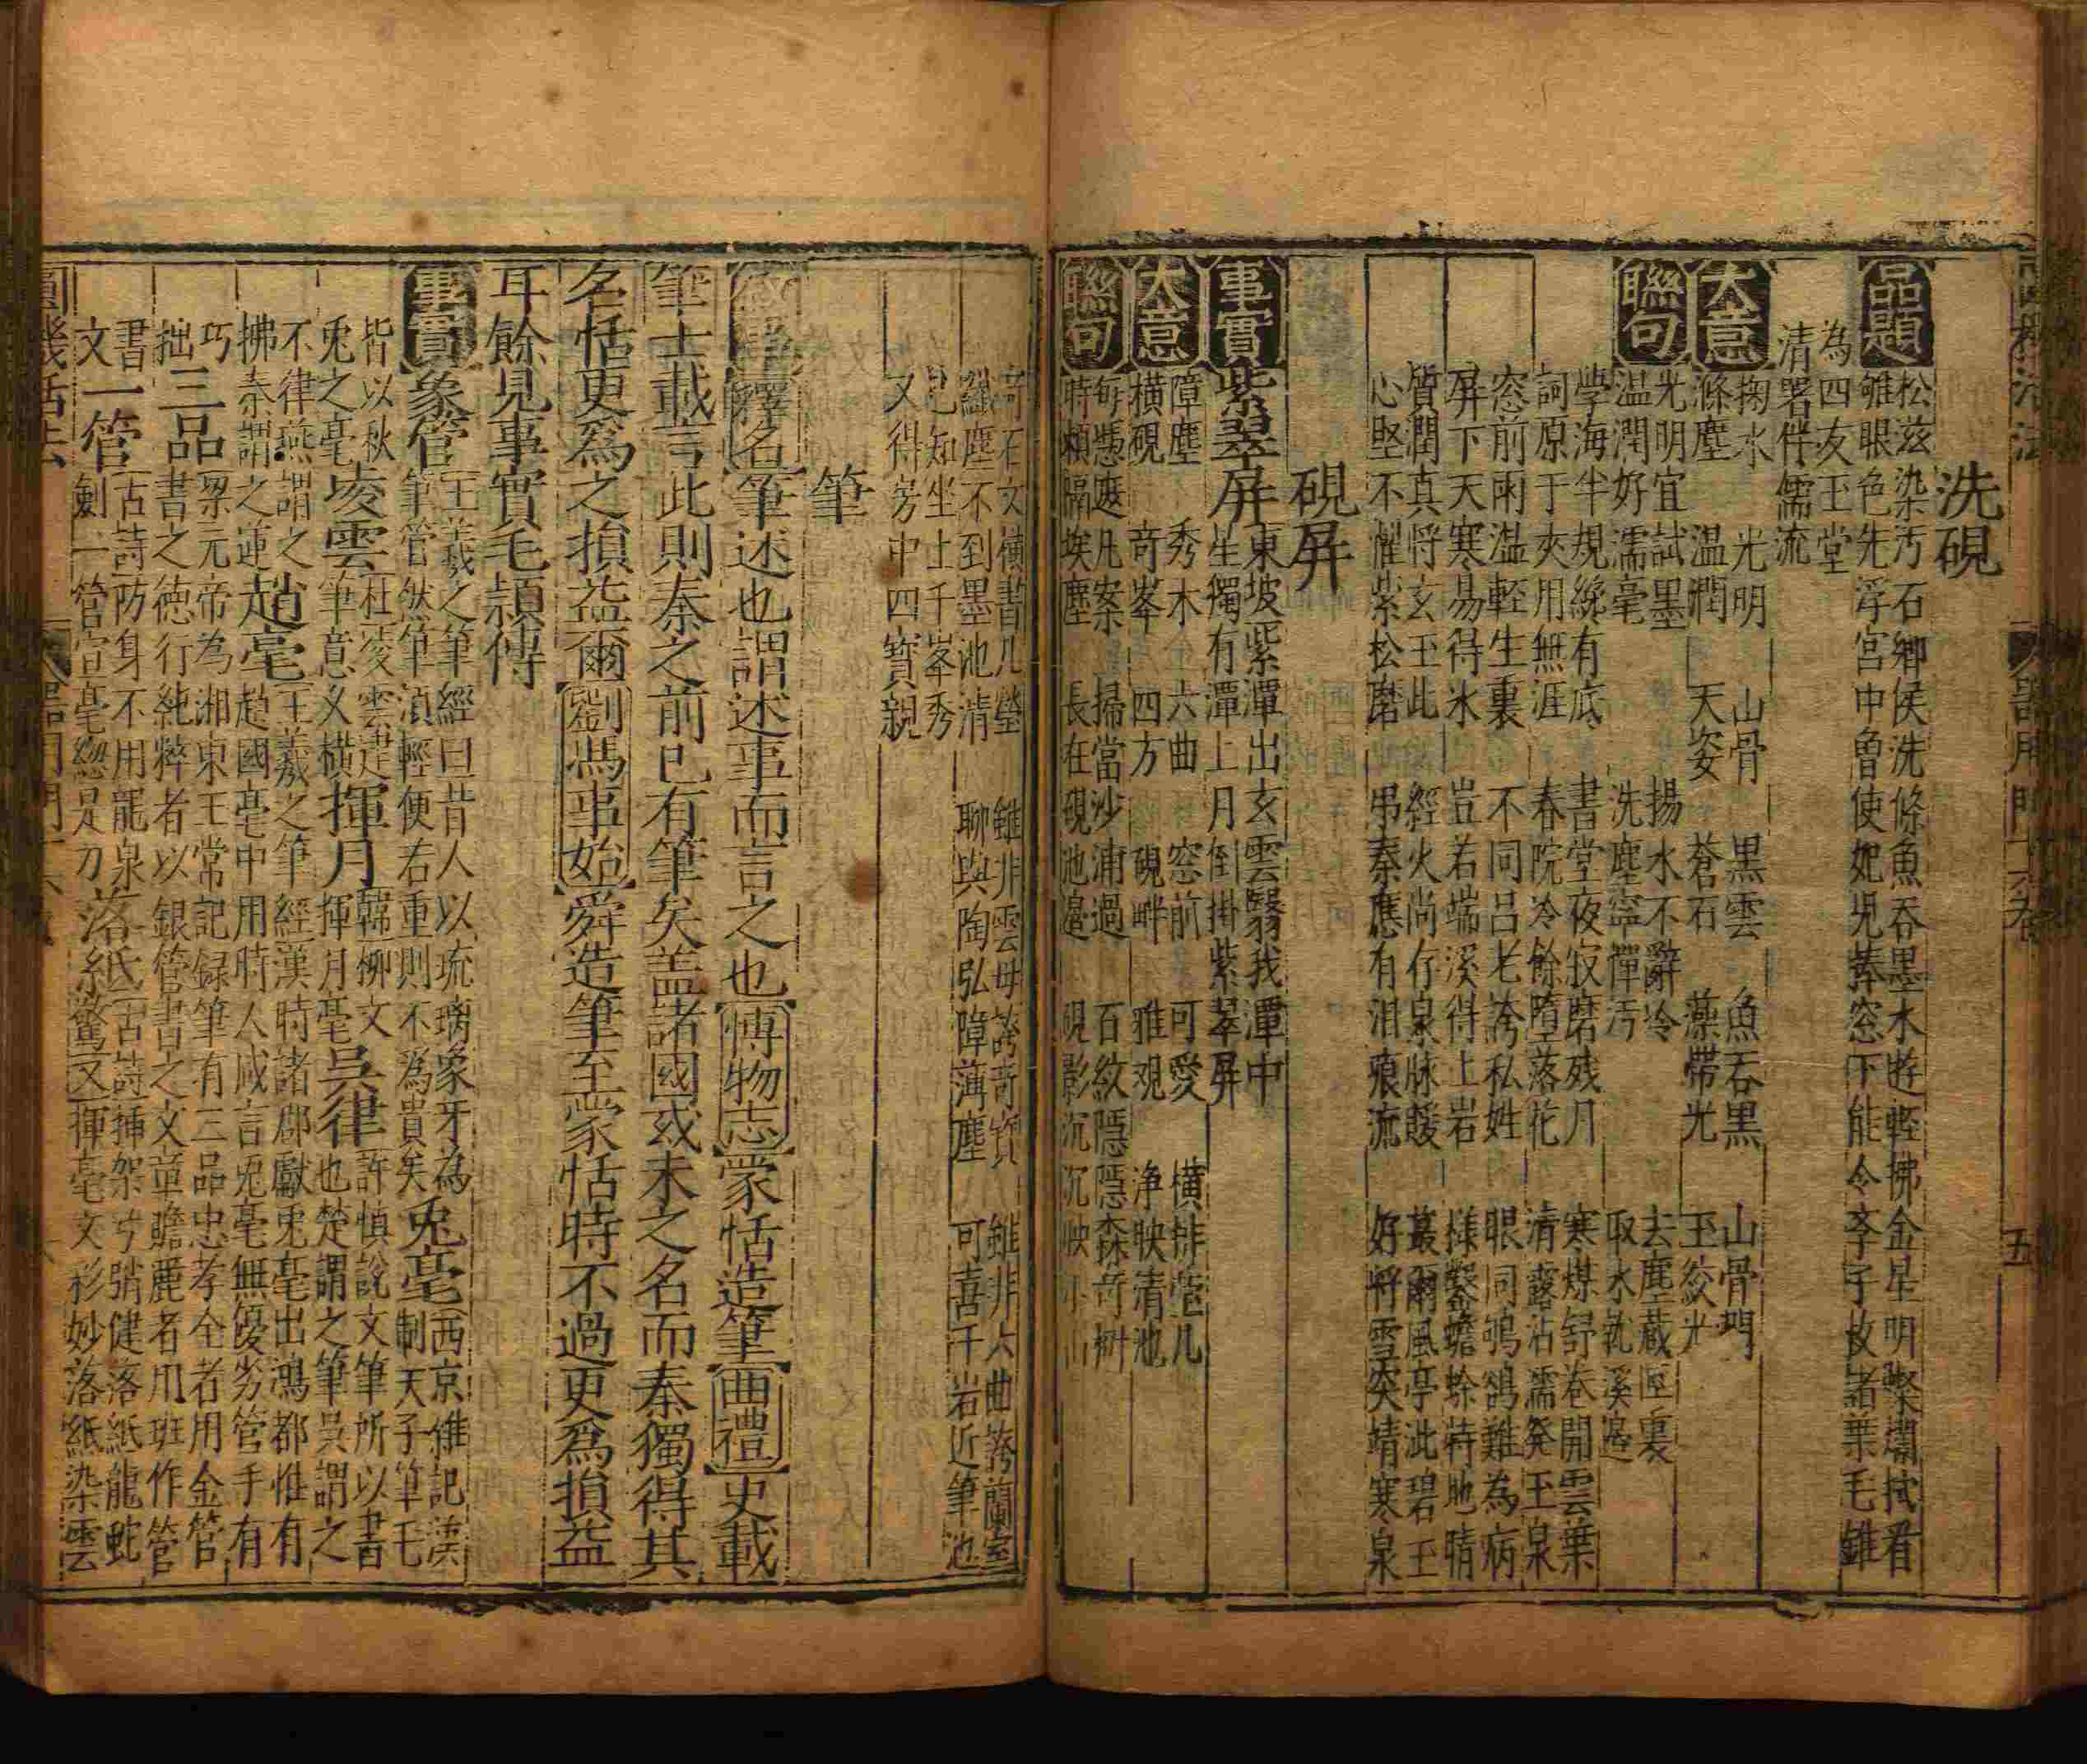 洗硯
品題
松滋染汚石鄉侯洗滌魚吞墨水遊輕拂金星明燦爛拭看
雊眼色先浮宫中魯使妃児捧窓下能令李子收諸葉毛錐
為四友玉堂
清署伴儒流
大意
掬水 光明 山骨 黒雲 魚吞黒 山骨門
滌塵 温潤 天姿 蒼石 藻帶光 玉紋光
聯句
光明宜試墨 揚水不辭冷 去塵蔵匣裏
温潤好濡毫 洗塵寧憚汚 取水就溪邉
學海半規纔有底 書堂夜寂磨残月 寒煤舒巻開雲葉
詞原于夾用無涯 春院冷餘墮落花 清露沾濡発玉泉
窓前雨溢輕生裏 不同吕老誇私姓 眼同鴝鵒難為病
屏下天寒易得氷 豈若端溪得上岩 様鑿蟾蜍特地晴
質潤真将玄玉此 經火尚存泉脉煖 叢爾風亭泚碧玉
心堅不懼紫松磨 吊秦應有泪痕流 好将雪突靖寒泉
硯屏
事實
紫翠屏
東坡紫潭出玄雲翳我潭中
生獨有潭上月倒掛紫翠屏
大意
障塵 秀木 六曲 窓前 可愛 横排莹几
横硯 奇峯 四方 硯畔 雅观 净映清池
聯句
每慿遮凡案 掃當沙浦過 石紋隠隠森奇樹
時頼隔埃塵 長在硯池邉 硯影沉沉映小山
奇石文横書几瑩 雖非雲母誇奇寳 雖非六曲誇蘭室
纎塵不到墨池清 聊與陶弘障薄塵 可喜千岩近筆池
已知坐上千峯秀
又得芳中四寳親
筆
叙事
釋名筆述也謂述事而言之也博物志蒙恬造筆曲禮史載
筆士載言此則秦之前已有筆矣盖諸國或未之名而秦獨得其
名恬更爲之損益爾劉馮事始舜造筆至蒙恬時不過更爲損益
耳餘見事實毛頴傳
事實
象管
王羲之筆經曰昔人以琉璃象牙為
筆管然筆湏輕便右重則不為貴矣
兎毫
西京雜記漢
制天子筆毛
皆以秋
兎之毫
凌雲
杜凌雲建
筆意乂横
揮月
韓柳文
揮月毫
吳律
許慎說文筆所以書
也楚謂之筆吳謂之
不律燕謂之
拂秦謂之連
趙毫
王羲之筆經漢時諸郡獻兎毫出鴻都惟有
趙國毫中用時人咸言兎毫無優劣管手有
巧
拙
三品
梁元帝為湘東王常記録筆有三品忠孝全者用金管
書之徳行純粹者以銀管書之文章贍麗者用班作管
書
文
一管
古詩防身不用罷泉
劍一管宣毫総是刀
落紙驚
古詩揷架兮弰健落紙龍蛇
文揮毫文彩妙落紙染雲
圓機活法
器用門十六卷
五